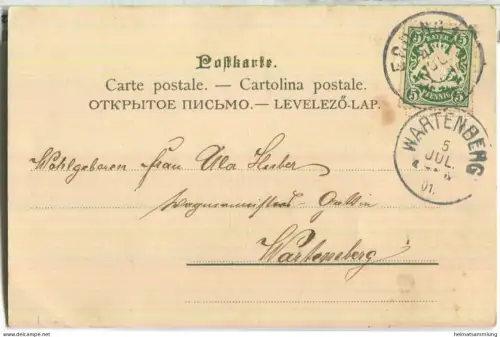 Postkarte.
Carte postale. — Cartolina postale.
ОТКРЫТОЕ ПИСЬМО.— LEVELEZŐ-LAP.
5 BAYERN 5
5 PFENNIG 5
WARTENBERG
5
JUL.
01.
Wohlgeboren Frau Huber
Wagnermeisters-Gattin
Wartenberg
www.heimatsammlung.de